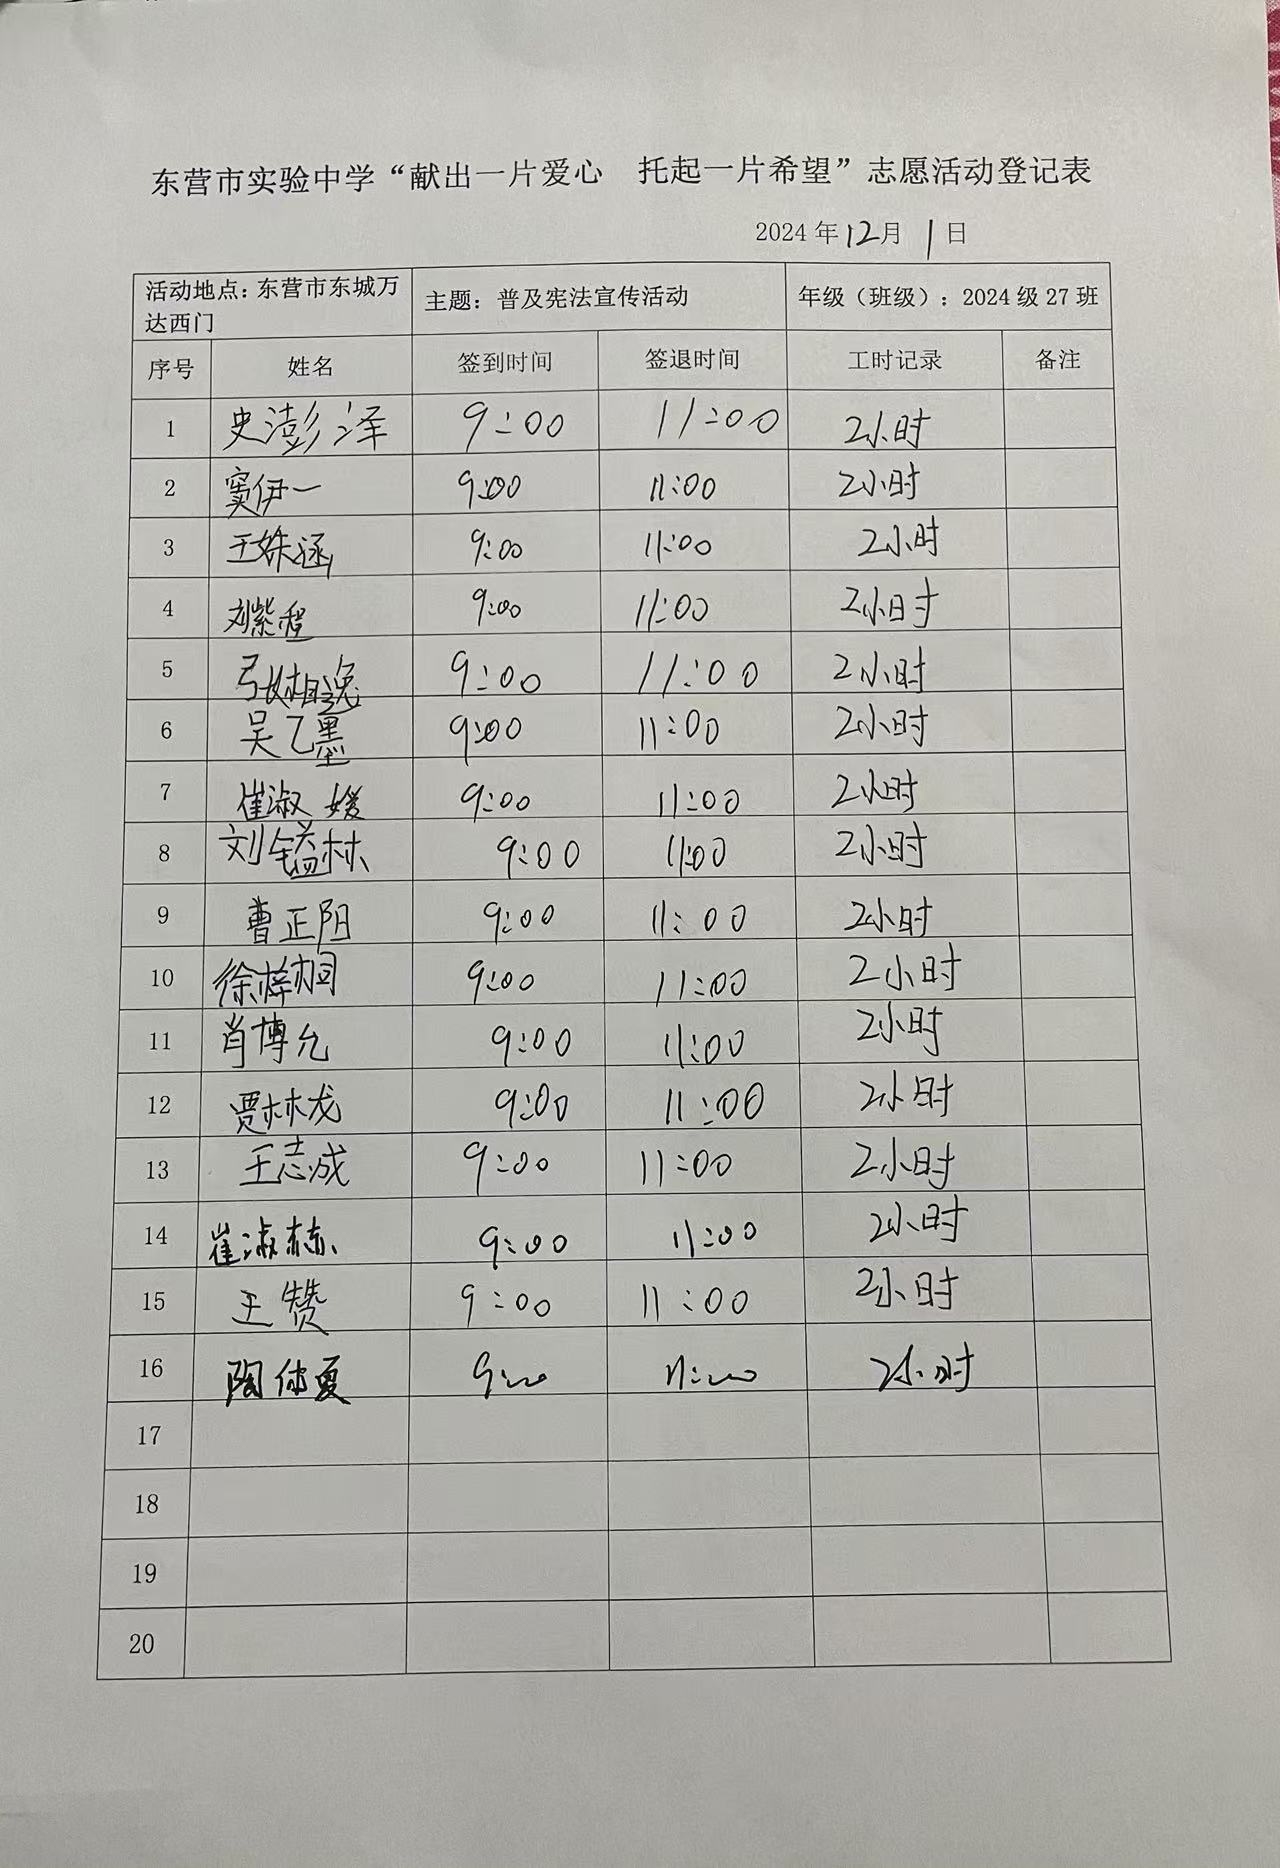 东营市实验中学“献出一片爱心 托起一片希望”志愿活动登记表
2024年12月1日
活动地点：东营市东城万达西门 主题：普及宪法宣传活动 年级（班级）：2024级27班
序号 姓名 签到时间 签退时间 工时记录 备注
1 史澎泽 9:00 11:00 2小时
2 窦伊一 9:00 11:00 2小时
3 王姝涵 9:00 11:00 2小时
4 刘紫程 9:00 11:00 2小时
5 9:00 11:00 2小时
6 吴乙墨 9:00 11:00 2小时
7 崔淑媛 9:00 11:00 2小时
8 刘镒林 9:00 11:00 2小时
9 曹正阳 9:00 11:00 2小时
10 徐梓桐 9:00 11:00 2小时
11 肖博允 9:00 11:00 2小时
12 贾林龙 9:00 11:00 2小时
13 王志成 9:00 11:00 2小时
14 崔淑栋 9:00 11:00 2小时
15 王赞 9:00 11:00 2小时
16 9:00 11:00 2小时
17
18
19
20